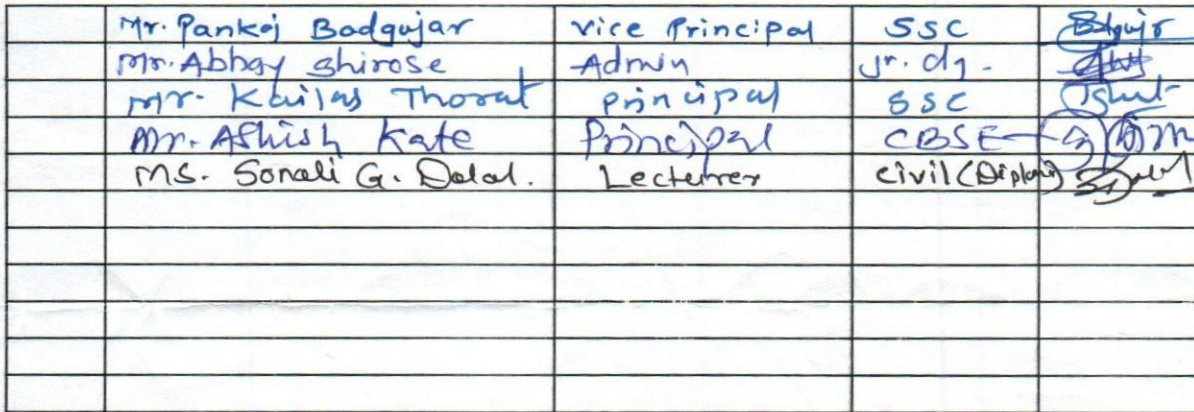 Mr. Pankaj Badgujar Vice Principal SSC
Mr. Abhay Shirose Admin Jr. clg.
Mr. Kailas Thorat principal SSC
Mr. Ashish Kate Principal CBSE
Ms. Sonali G. Dalal. Lecturer civil (Diploma)